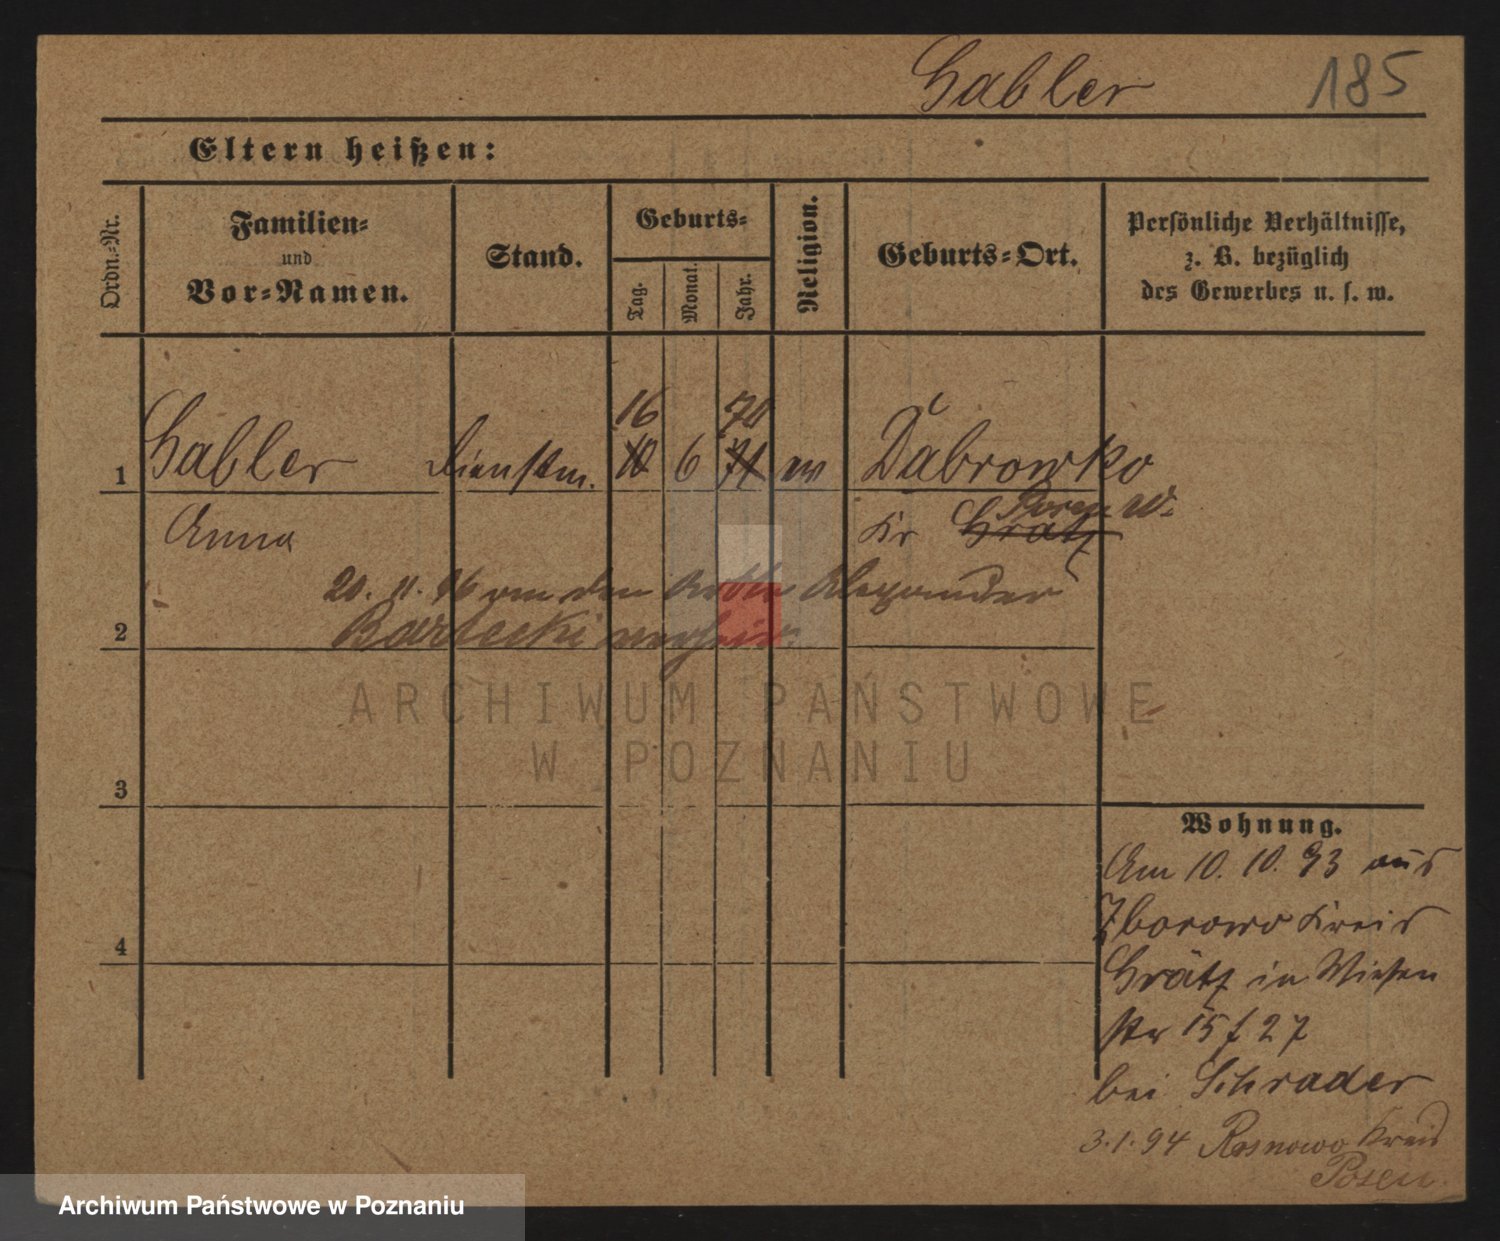 Gabler 185
Eltern heißen:
Ordn.-Nr.
Familien-
und
Vor-Namen.
Stand.
Geburts-
Tag.
Monat.
Jahr.
Religion.
Geburts-Ort.
Persönliche Verhältnisse,
z. B. bezüglich
des Gewerbes u. s. w.
16 74
1 Gabler Dienstm. 10 6 71 Dabrowko
Posen W.
Anna Kr Grätz
20. 11. 96 an den Alexander
2 Bartecki verheir.
ARCHIWUM PAŃSTWOWE
W POZNANIU
3
Wohnung.
Am 10. 10. 93 aus
Zborowo Kreis
4
Grätz in Wiesen
str 15 f 27
bei Schrader
3.1.94 Rosnowo Kreis
Posen.
Archiwum Państwowe w Poznaniu